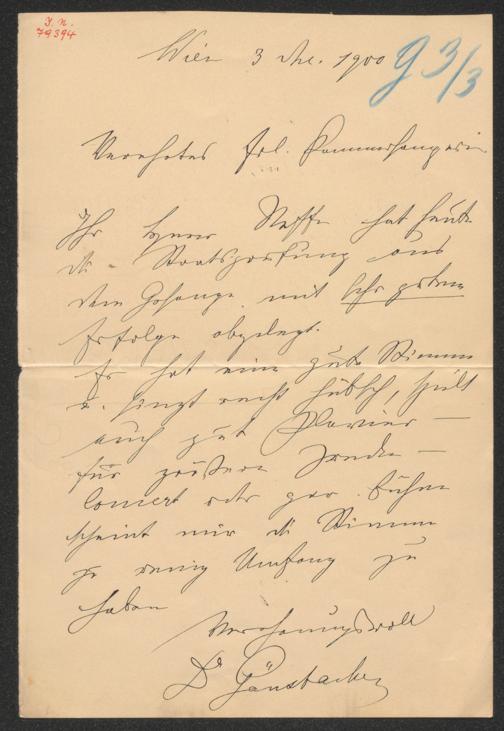 J. N.
79394
G 3/3
Wien 3 Dec. 1900
Verehrtes Frl. Kammersängerin
Ihr Herr Neffe hat heute
die Staatsprüfung aus
dem Gesange mit sehr gutem
Erfolge abgelegt.
Er hat eine gute Stimme
u. singt recht hübsch, spielt
auch gut Klavier —
für größere Zwecke —
Concert oder gar Bühne
scheint mir die Stimme
zu wenig Umfang zu
haben
Verehrungsvoll
Dr Gänsbacher